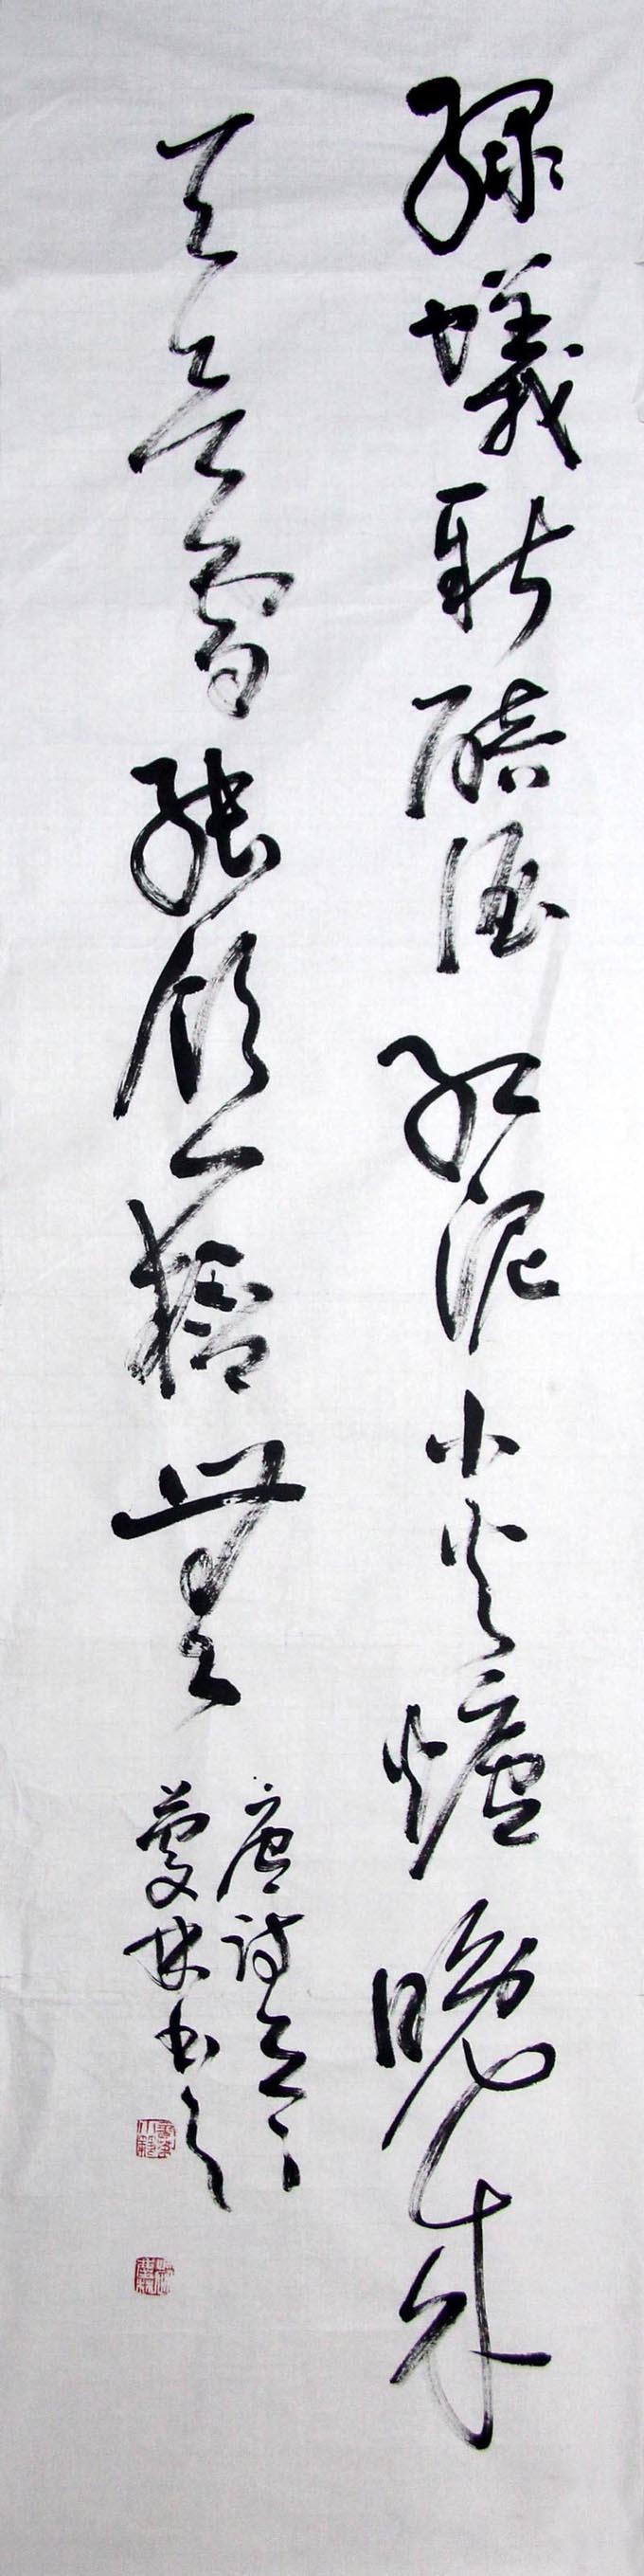 綠蟻新醅酒紅泥小火爐晚來
天欲雪能飲一杯無
唐詩一首